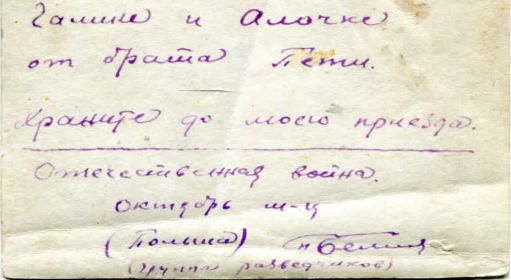 Галине и Алочке
от брата Пети.
Храните до моего приезда.
Отечественная война.
Октябрь м-ц
(Польша)
(группа разведчиков)